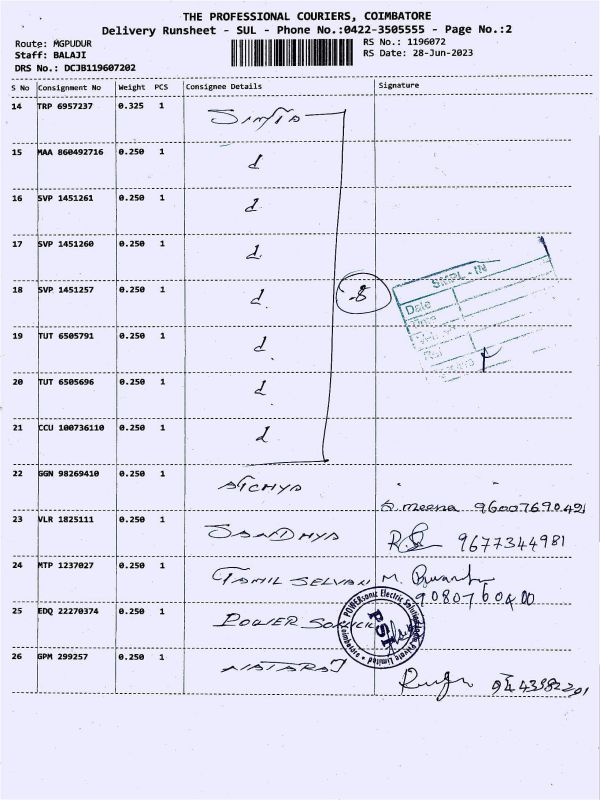 THE PROFESSIONAL COURIERS, COIMBATORE
Delivery Runsheet - SUL - Phone No.:0422-3505555 - Page No.:2
Route: MGPUDUR
RS No.: 1196072
Staff: BALAJI
RS Date: 28-Jun-2023
DRS No.: DCJB119607202
S No Consignment No Weight PCS Consignee Details Signature
14 TRP 6957237 0.325 1
15 MAA 860492716 0.250 1 d
16 SVP 1451261 0.250 1 d
17 SVP 1451260 0.250 1 d
18 SVP 1451257 0.250 1 d 8
SMPL - IN
Date
19 TUT 6505791 0.250 1 d
20 TUT 6505696 0.250 1 d
21 CCU 100736110 0.250 1 d
22 GGN 98269410 0.250 1
S. meena 9600769042
23 VLR 1825111 0.250 1 SANDHYA 9677344981
24 MTP 1237027 0.250 1 TAMIL SELVAN M.
25 EDQ 22270374 0.250 1 POWER SONIC
POWERsonic Electric Solutions India Private Limited
PSI
Coimbatore
26 GPM 299257 0.250 1 NATARAJ